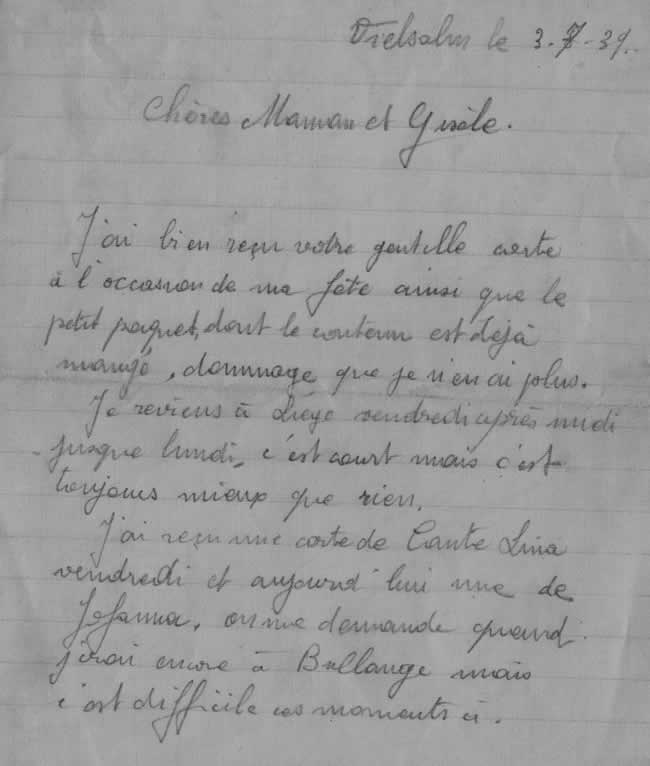 Vielsalm le 3.7.39.
Chères Maman et Gisèle.
J'ai bien reçu votre gentille carte
à l'occasion de ma fête ainsi que le
petit paquet, dont le contenu est déjà
mangé, dommage que je n'en ai plus.
Je reviens à Liège vendredi après midi
jusque lundi, c'est court mais c'est
toujours mieux que rien.
J'ai reçu une carte de Tante Lina
vendredi et aujourd'hui une de
on me demande quand
j'irai encore à Bullange mais
c'est difficile ces moments ci.